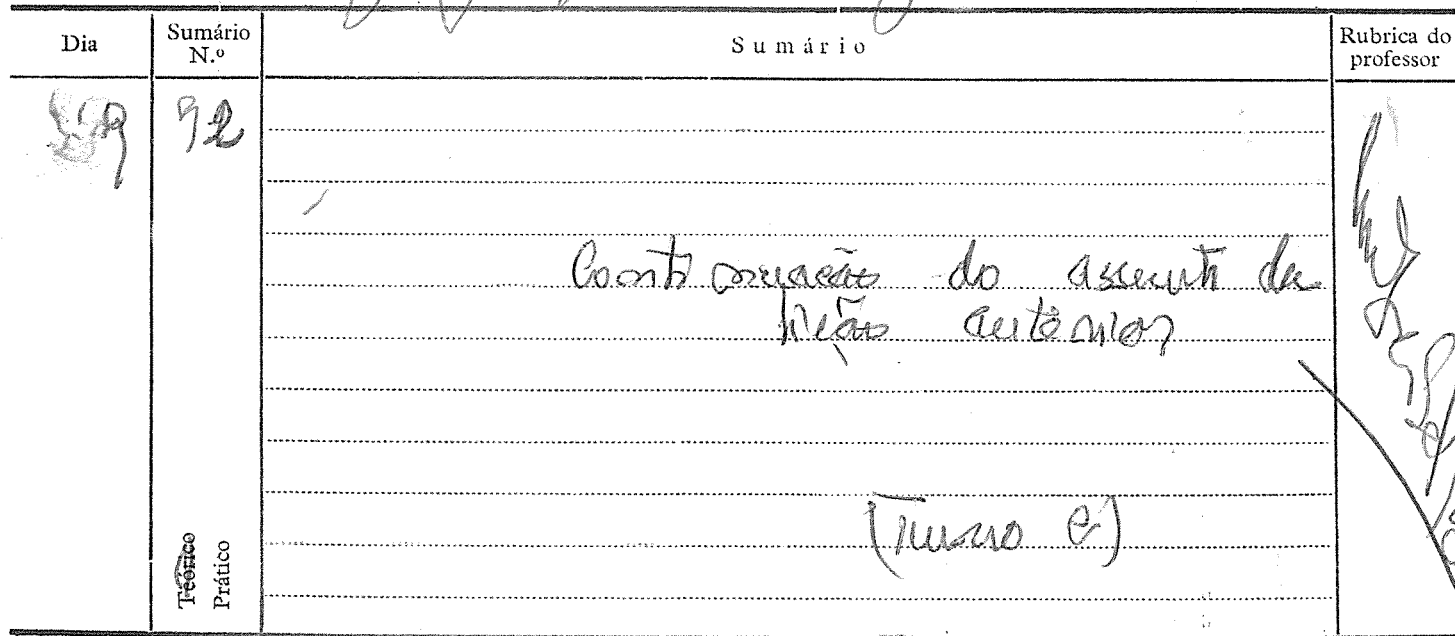 Dia
Sumário
N.º
Sumário
Rubrica do
professor
92
Continuação do assunto da
lição anterior
(Turno C)
Teórico
Prático